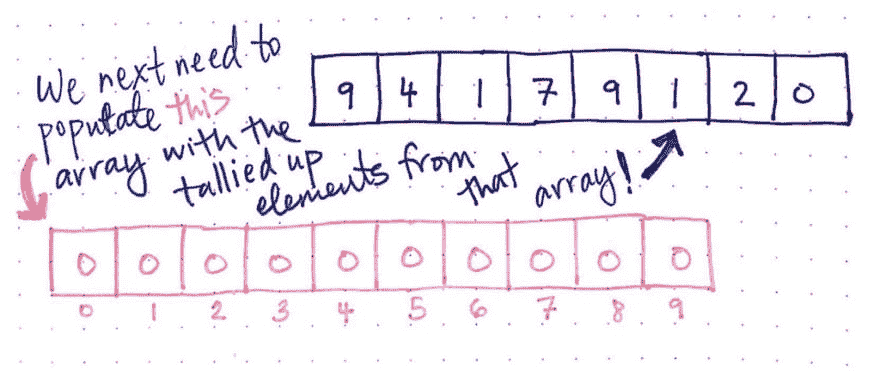 We next need to
populate this
array with the
tallied up
elements from
that array!
9 4 1 7 9 1 2 0
0 0 0 0 0 0 0 0 0 0
0 1 2 3 4 5 6 7 8 9